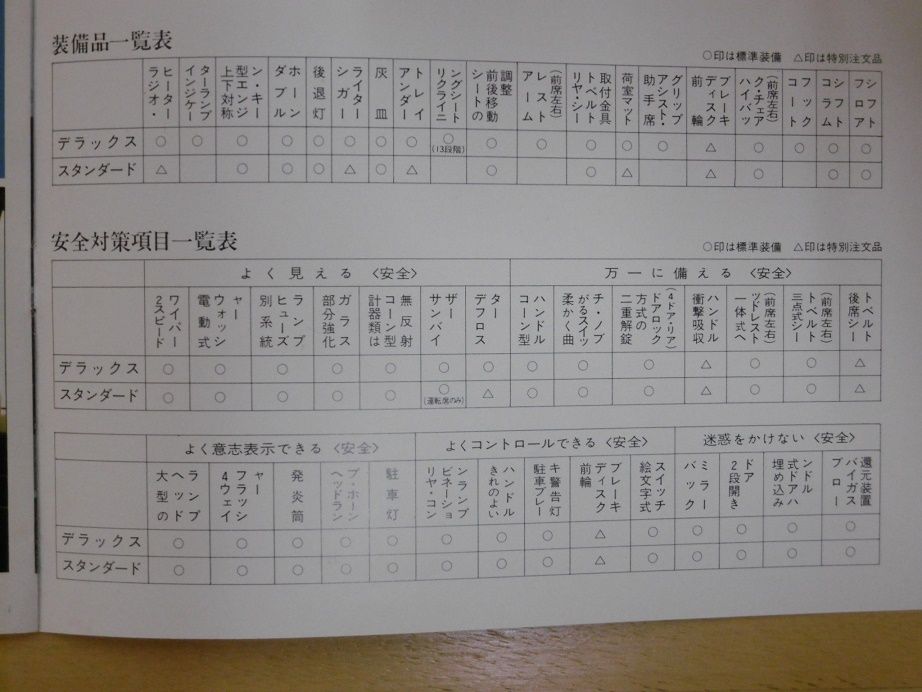 装備品一覧表
○印は標準装備 △印は特別注文品
ラジオ・ヒーター
インジケーターランプ
上下対称型エンジン・キー
ダブルホーン
後退灯
シガーライター
灰皿
アンダートレイ
リクライニングシート
シートの前後移動調整
アームレスト(前席左右)
リヤ・シートベルト取付金具
荷室マット
助手席アシスト・グリップ
前輪ディスクブレーキ
ハイバック・チェア(前席左右)
コートフック
コラムシフト
フロアシフト
デラックス ○ ○ ○ ○ ○ ○ ○ ○ ○(13段階) ○ ○ ○ ○ ○ △ ○ ○ ○ ○
スタンダード △ ○ ○ ○ △ ○ △ ○ ○ △ △ ○ ○ ○
安全対策項目一覧表
○印は標準装備 △印は特別注文品
よく見える〈安全〉 万一に備える〈安全〉
2スピードワイパー
電動式ウォッシャー
別系統ヒューズランプ
部分強化ガラス
計器類はコーン型無反射
サンバイザー
デフロスター
コーン型ハンドル
柔かく曲がるスイッチ・ノブ
二重解錠方式のドアロック(4ドア・リア)
衝撃吸収ハンドル
一体式ヘッドレスト(前席左右)
三点式シートベルト(前席左右)
後席シートベルト
デラックス ○ ○ ○ ○ ○ ○ ○ ○ ○ ○ △ ○ ○ △
スタンダード ○ ○ ○ ○ ○ ○(運転席のみ) △ ○ ○ ○ △ ○ ○ △
よく意志表示できる〈安全〉 よくコントロールできる〈安全〉 迷惑をかけない〈安全〉
大型のヘッドランプ
4ウェイフラッシャー
発炎筒
ヘッドランプ・ホーン
駐車灯
リヤ・コンビネーションランプ
きれのよいハンドル
駐車ブレーキ警告灯
前輪ディスクブレーキ
絵文字式スイッチ
バックミラー
2段開きドア
埋め込み式ドアハンドル
ブローバイガス還元装置
デラックス ○ ○ ○ ○ ○ ○ ○ ○ △ ○ ○ ○ ○ ○
スタンダード ○ ○ ○ ○ ○ ○ ○ ○ △ ○ ○ ○ ○ ○